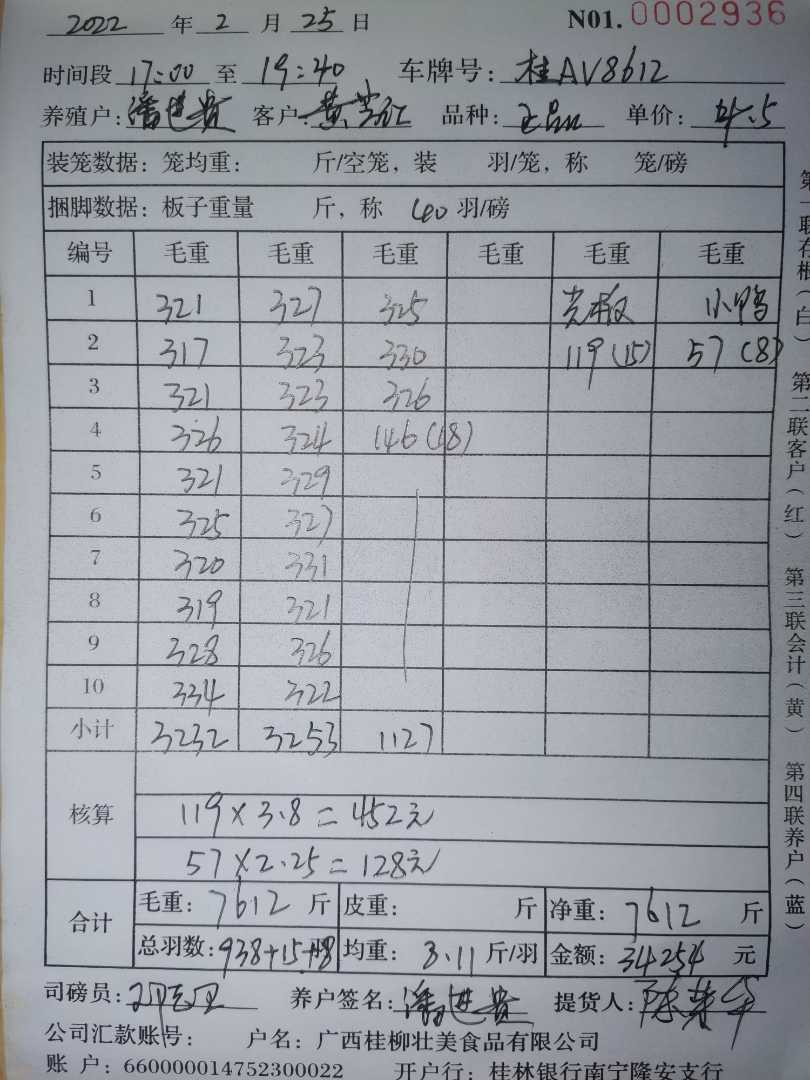 2022 年 2 月 25 日 N01. 0002936
时间段 17:00 至 19:40 车牌号: 桂AV8612
养殖户: 潘进贵 客户: 黄 品种: 正品 单价: 4.5
装笼数据: 笼均重: 斤/空笼, 装 羽/笼, 称 笼/磅
捆脚数据: 板子重量 斤, 称 40 羽/磅
编号 毛重 毛重 毛重 毛重 毛重 毛重
1 321 327 325 光板 小鸭
2 317 323 330 119(15) 57(8)
3 321 323 326
4 326 324 146(18)
5 321 329
6 325 327
7 320 331
8 319 321
9 328 326
10 334 322
小计 3232 3253 1127
核算
119×3.8=452元
57×2.25=128元
合计
毛重: 7612 斤 皮重: 斤 净重: 7612 斤
总羽数: 938+15+8 均重: 3.11 斤/羽 金额: 34254 元
司磅员: 养户签名: 潘进贵 提货人: 陈
公司汇款账号: 户名: 广西桂柳壮美食品有限公司
账 户: 660000014752300022 开户行: 桂林银行南宁隆安支行
第一联存根(白) 第二联客户(红) 第三联会计(黄) 第四联养户(蓝)